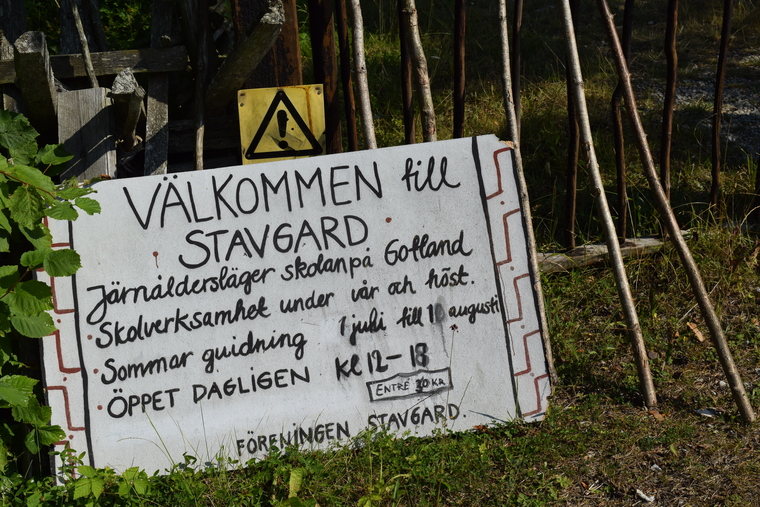 VÄLKOMMEN till
STAVGARD
Järnåldersläger skolan på Gotland
Skolverksamhet under vår och höst.
Sommar guidning 1 juli till 10 augusti
ÖPPET DAGLIGEN kl 12-18
ENTRÉ 30 KR
FÖRENINGEN STAVGARD.